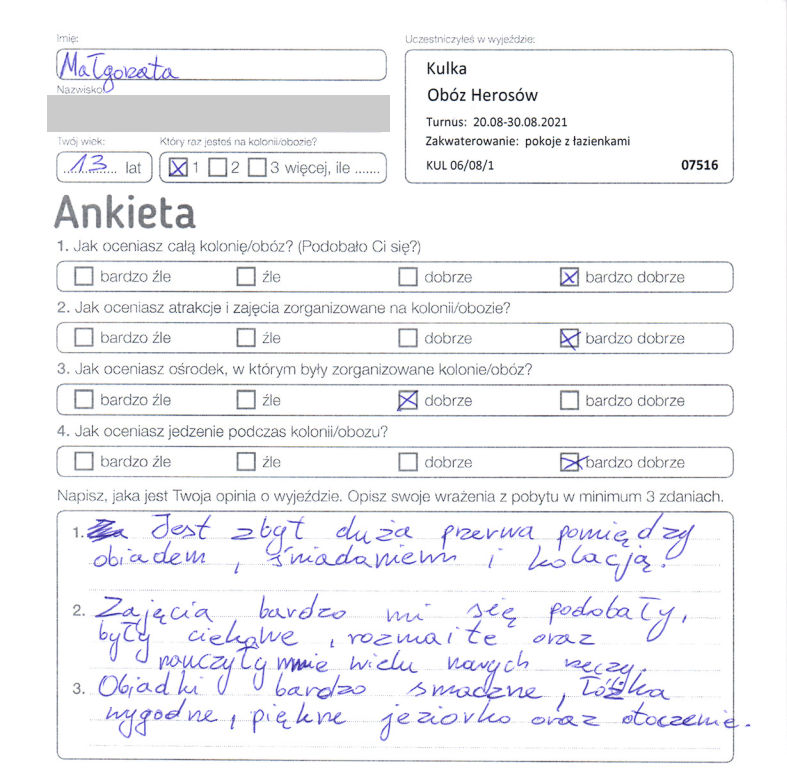 Imię:
Małgorzata
Nazwisko
Twój wiek:
13 lat
Który raz jesteś na kolonii/obozie?
1 2 3 więcej, ile .......
Uczestniczyłeś w wyjeździe:
Kulka
Obóz Herosów
Turnus: 20.08-30.08.2021
Zakwaterowanie: pokoje z łazienkami
KUL 06/08/1 07516
Ankieta
1. Jak oceniasz całą kolonię/obóz? (Podobało Ci się?)
bardzo źle źle dobrze bardzo dobrze
2. Jak oceniasz atrakcje i zajęcia zorganizowane na kolonii/obozie?
bardzo źle źle dobrze bardzo dobrze
3. Jak oceniasz ośrodek, w którym były zorganizowane kolonie/obóz?
bardzo źle źle dobrze bardzo dobrze
4. Jak oceniasz jedzenie podczas kolonii/obozu?
bardzo źle źle dobrze bardzo dobrze
Napisz, jaka jest Twoja opinia o wyjeździe. Opisz swoje wrażenia z pobytu w minimum 3 zdaniach.
1. Jest zbyt duża przerwa pomiędzy
obiadem, śniadaniem i kolacją.
2. Zajęcia bardzo mi się podobały,
były ciekawe, rozmaite oraz
nauczyły mnie wielu nowych rzeczy.
3. Obiadki bardzo smaczne, łóżka
wygodne, piękne jeziorko oraz otoczenie.